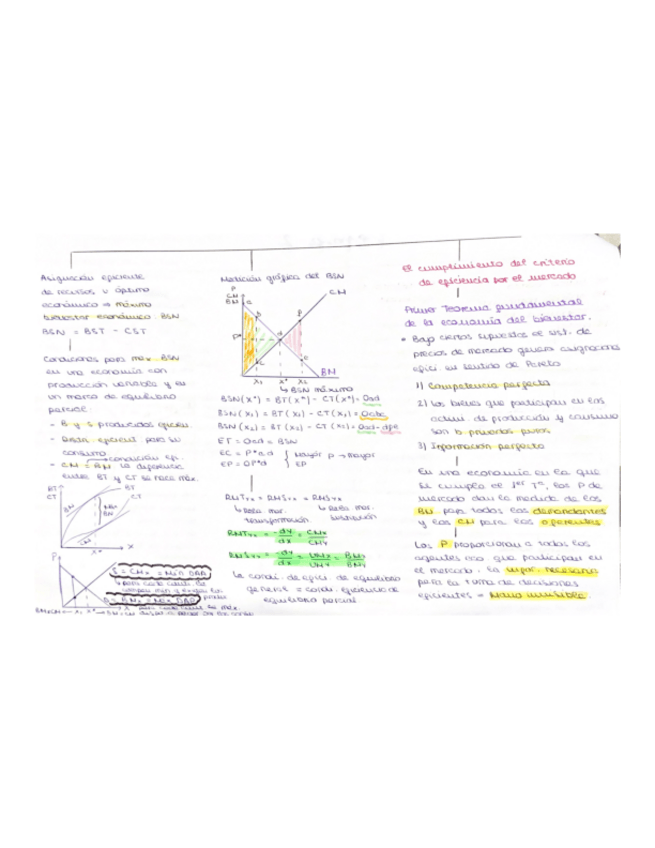 Asignación eficiente
de recursos u óptimo
económico ⇒ máximo
bienestar económico BSN
BSN = BST - CST
Condiciones para max BSN
en una economía con
producción variable y en
un marco de equilibrio
parcial:
- B y S producidos eficien.
- Distri. eficient para su
consumo
- CM = BM la diferencia
entre BT y CT se hace máx.
condición efi.
BT
CT
BT
CT
BN
CM
X*
X
P
S = CMx = Min DAA
D = BMx = Max DAP
X₁ X*
Medición gráfica del BSN
P
CM
BM
a
b
c
d
e
f
P*
CM
BM
X₁ X* X₂
↳ BSN máximo
BSN(X*) = BT(X*) - CT(X*) = Oad
BSN(X₁) = BT(X₁) - CT(X₁) = Oabc
BSN(X₂) = BT(X₂) - CT(X₂) = Oad - dfe
ET = Oad = BSN
EC = P*ad
EP = OP*d
Mayor P → mayor
EP
RMTyx = RMSyx = RMSyx
↳ Rela mar.
transformación
↳ Rela mar.
sustitución
RMTyx = -dy/dx = CMx/CMy
RMSyx = -dy/dx = UMx/UMy = BMx/BMy
La condi. de efici. de equilibrio
general = condi. eficiencia de
equilibrio parcial
El cumplimiento del criterio
de eficiencia por el mercado
Primer Teorema fundamental
de la economía del bienestar.
• Bajo ciertos supuestos el sist. de
precios de mercado genera asignaciones
efici en sentido de Pareto
1) Competencia perfecta
2) los bienes que participan en las
activi. de producción y consumo
son b privados puros
3) Información perfecta
En una economía en la que
se cumpla el 1er Tª, los P de
mercado dan la medida de los
BM para todos los demandantes
y los CM para los oferentes
Los P proporcionan a todos los
agentes eco que participan en
el mercado, la infor. necesaria
para la toma de decisiones
eficientes = Mano invisible.